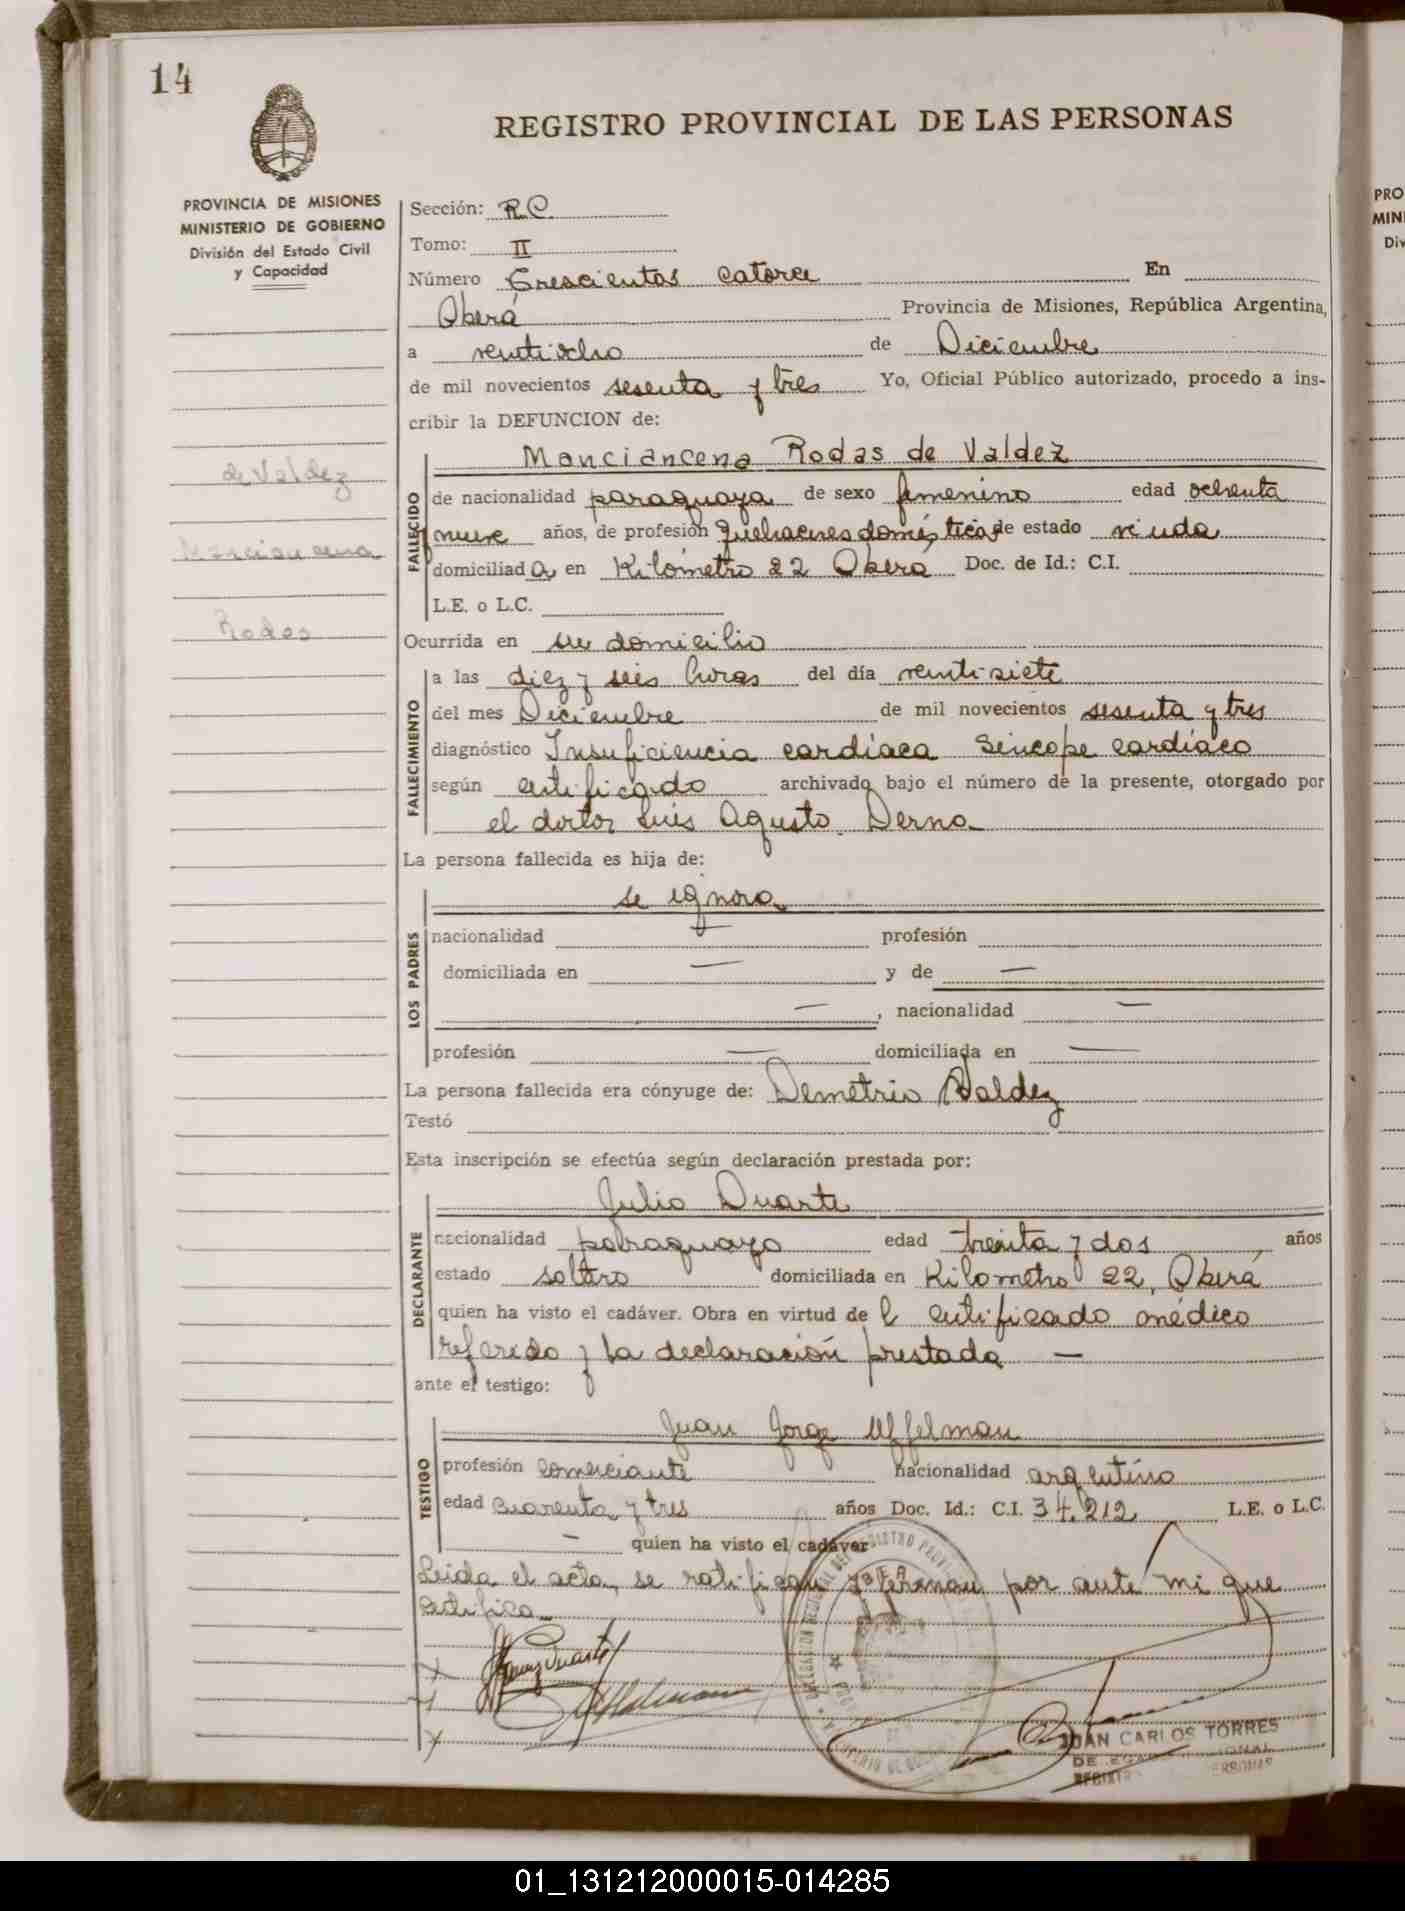 14
REGISTRO PROVINCIAL DE LAS PERSONAS
PROVINCIA DE MISIONES
MINISTERIO DE GOBIERNO
División del Estado Civil
y Capacidad
de Valdez
Manciancena
Rodas
Sección: R.C.
Tomo: II
Número Trescientos catorce En
Oberá Provincia de Misiones, República Argentina,
a veintiocho de Diciembre
de mil novecientos sesenta y tres Yo, Oficial Público autorizado, procedo a ins-
cribir la DEFUNCION de:
Manciancena Rodas de Valdez
FALLECIDO
de nacionalidad paraguaya de sexo femenino edad ochenta
y nueve años, de profesión quehaceres domésticos de estado viuda
domiciliada en Kilómetro 22 Oberá Doc. de Id.: C.I.
L.E. o L.C.
Ocurrida en su domicilio
FALLECIMIENTO
a las diez y seis horas del día veintisiete
del mes Diciembre de mil novecientos sesenta y tres
diagnóstico Insuficiencia cardíaca Síncope cardíaco
según certificado archivado bajo el número de la presente, otorgado por
el doctor Luis Agusto Derna
La persona fallecida es hija de:
se ignora
LOS PADRES
nacionalidad — profesión
domiciliada en — y de —
—, nacionalidad —
profesión — domiciliada en —
La persona fallecida era cónyuge de: Demetrio Valdez
Testó
Esta inscripción se efectúa según declaración prestada por:
Julio Duarte
DECLARANTE
nacionalidad paraguayo edad treinta y dos años
estado soltero domiciliada en Kilometro 22, Oberá
quien ha visto el cadáver. Obra en virtud de l certificado médico
referido y la declaración prestada —
ante el testigo:
Juan Jorge Uffelman
TESTIGO
profesión comerciante nacionalidad argentino
edad cuarenta y tres años Doc. Id.: C.I. 34.212 L.E. o L.C.
— quien ha visto el cadáver
Leida el acta, se ratifican y firman por ante mi que
certifico
JUAN CARLOS TORRES
01_131212000015-014285